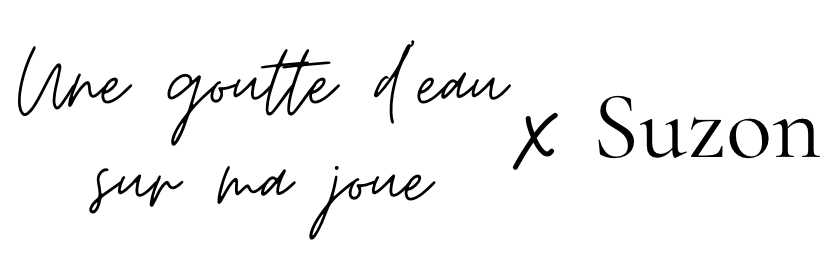 Une goutte d'eau
sur ma joue
x Suzon